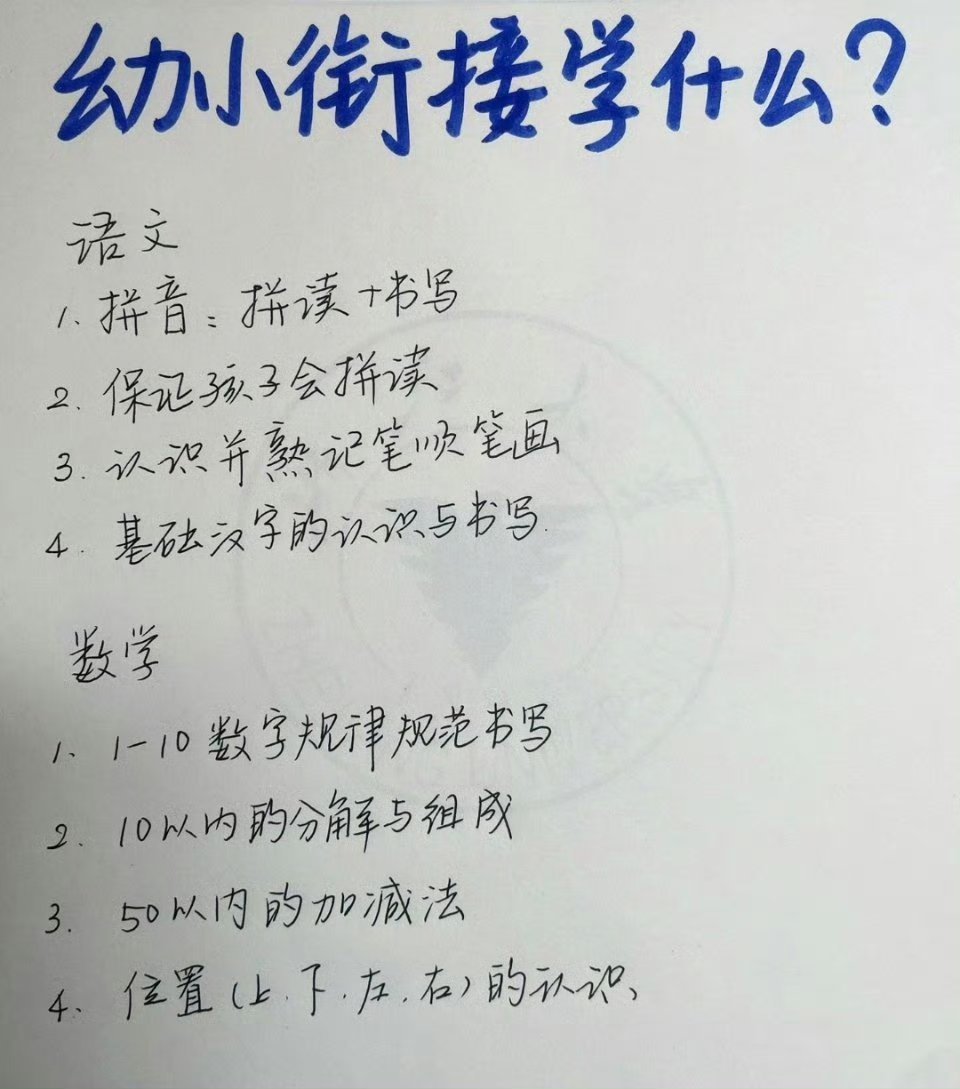 幼小衔接学什么?
语文
1. 拼音: 拼读+书写
2. 保证孩子会拼读
3. 认识并熟记笔顺笔画
4. 基础汉字的认识与书写.
数学
1、1-10数字规律规范书写
2. 10以内的分解与组成
3. 50以内的加减法
4. 位置(上.下.左.右)的认识、